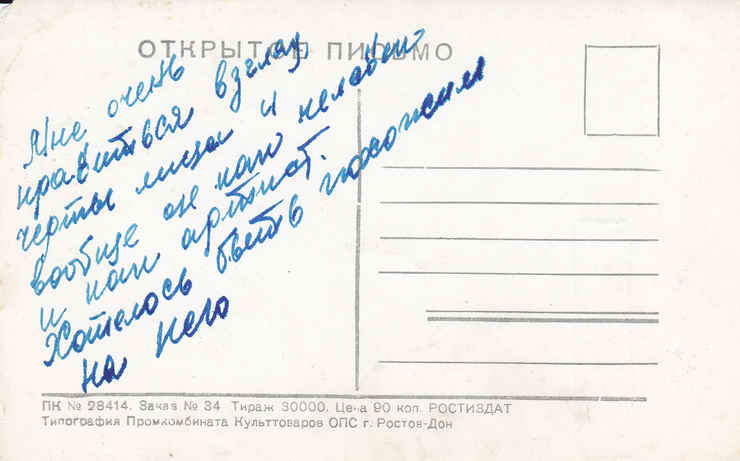 ОТКРЫТОЕ ПИСЬМО
Мне очень
нравиться взгляд
черты лица и
вообще он как человек
и как артист.
Хотелось быть похожим
на него
ПК № 28414. Заказ № 34 Тираж 30000. Цена 90 коп. РОСТИЗДАТ
Типография Промкомбината Культтоваров ОПС г. Ростов-Дон